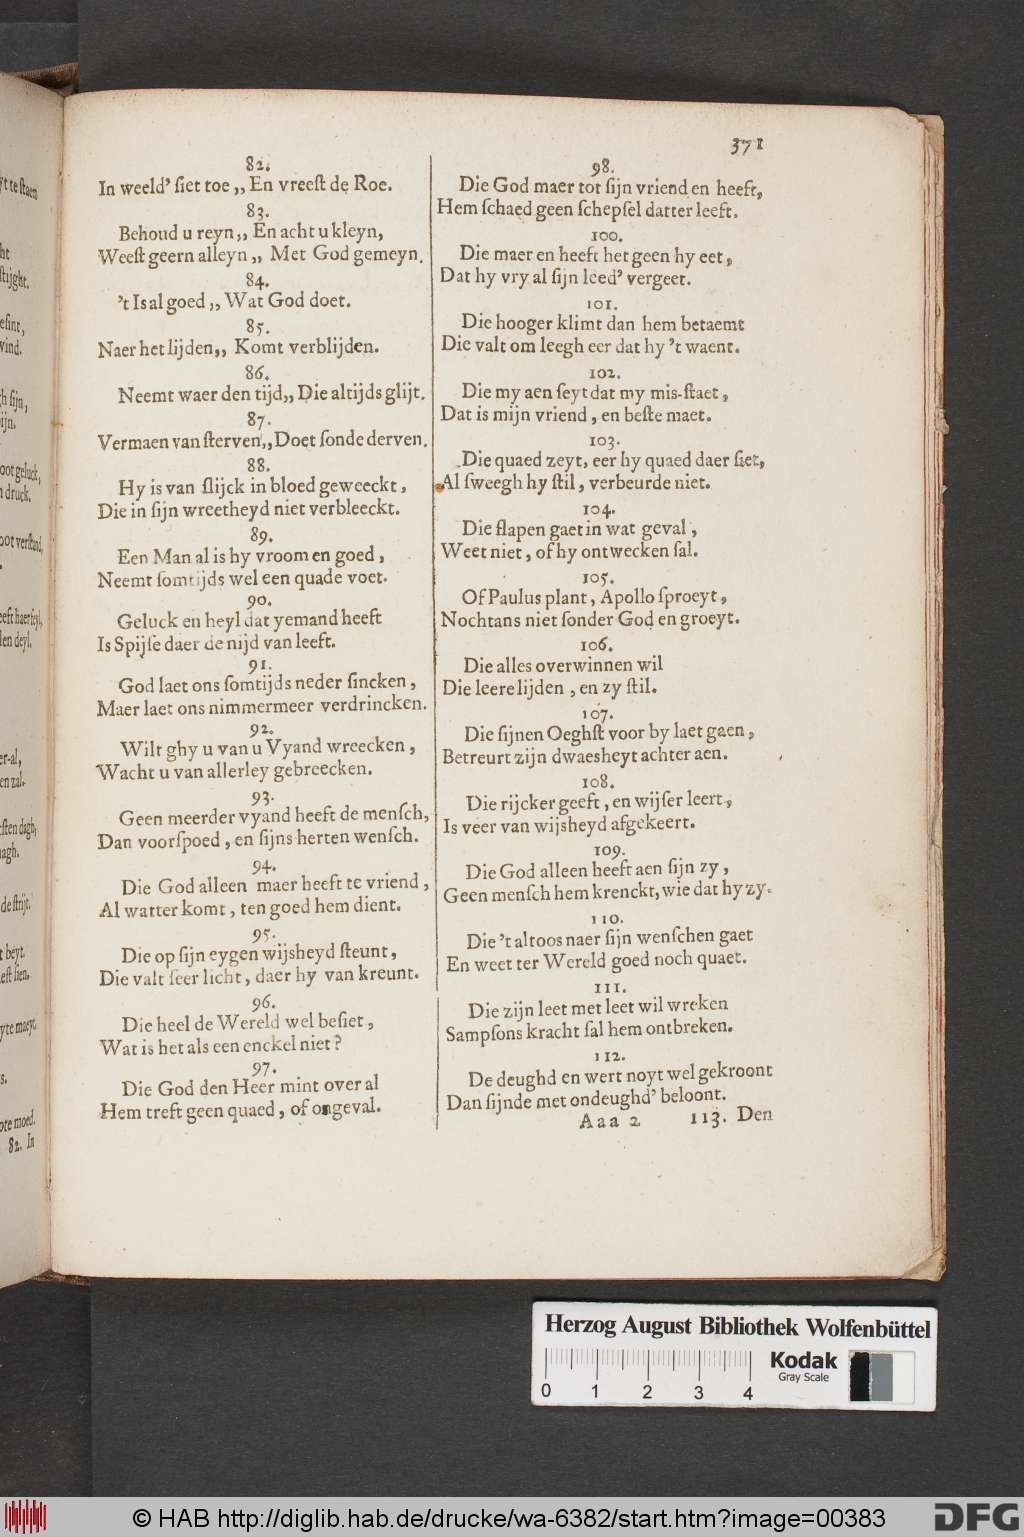 371
82.
In weeld' siet toe ,, En vreest de Roe.
83.
Behoud u reyn,, En acht u kleyn,
Weest geern alleyn ,, Met God gemeyn.
84.
't Is al goed ,, Wat God doet.
85.
Naer het lijden,, Komt verblijden.
86.
Neemt waer den tijd,, Die altijds glijt.
87.
Vermaen van sterven,, Doet sonde derven.
88.
Hy is van slijck in bloed geweeckt,
Die in sijn wreetheyd niet verbleeckt.
89.
Een Man al is hy vroom en goed,
Neemt somtijds wel een quade voet.
90.
Geluck en heyl dat yemand heeft
Is Spijse daer de nijd van leeft.
91.
God laet ons somtijds neder sincken,
Maer laet ons nimmermeer verdrincken.
92.
Wilt ghy u van u Vyand wreecken,
Wacht u van allerley gebreecken.
93.
Geen meerder vyand heeft de mensch,
Dan voorspoed, en sijns herten wensch.
94.
Die God alleen maer heeft te vriend,
Al watter komt, ten goed hem dient.
95.
Die op sijn eygen wijsheyd steunt,
Die valt seer licht, daer hy van kreunt.
96.
Die heel de Wereld wel besiet,
Wat is het als een enckel niet?
97.
Die God den Heer mint over al
Hem treft geen quaed, of ongeval.
98.
Die God maer tot sijn vriend en heeft,
Hem schaed geen schepsel datter leeft.
100.
Die maer en heeft het geen hy eet,
Dat hy vry al sijn leed' vergeet.
101.
Die hooger klimt dan hem betaemt
Die valt om leegh eer dat hy 't waent.
102.
Die my aen seyt dat my mis-staet,
Dat is mijn vriend, en beste maet.
103.
Die quaed zeyt, eer hy quaed daer siet,
Al sweegh hy stil, verbeurde niet.
104.
Die slapen gaet in wat geval,
Weet niet, of hy ontwecken sal.
105.
Of Paulus plant, Apollo sproeyt,
Nochtans niet sonder God en groeyt.
106.
Die alles overwinnen wil
Die leere lijden, en zy stil.
107.
Die sijnen Oeghst voor by laet gaen,
Betreurt zijn dwaesheyt achter aen.
108.
Die rijcker geeft, en wijser leert,
Is veer van wijsheyd afgekeert.
109.
Die God alleen heeft aen sijn zy,
Geen mensch hem krenckt, wie dat hy zy.
110.
Die 't altoos naer sijn wenschen gaet
En weet ter Wereld goed noch quaet.
111.
Die zijn leet met leet wil wreken
Sampsons kracht sal hem ontbreken.
112.
De deughd en wert noyt wel gekroont
Dan sijnde met ondeughd' beloont.
Aaa 2 113. Den
82. In
Herzog August Bibliothek Wolfenbüttel
Kodak
Gray Scale
0 1 2 3 4
© HAB http://diglib.hab.de/drucke/wa-6382/start.htm?image=00383
DFG